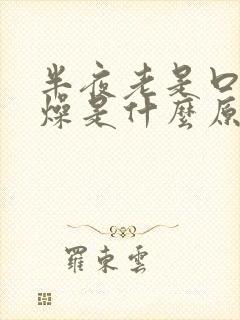 半夜老是口
燥是什麼原
羅東雲